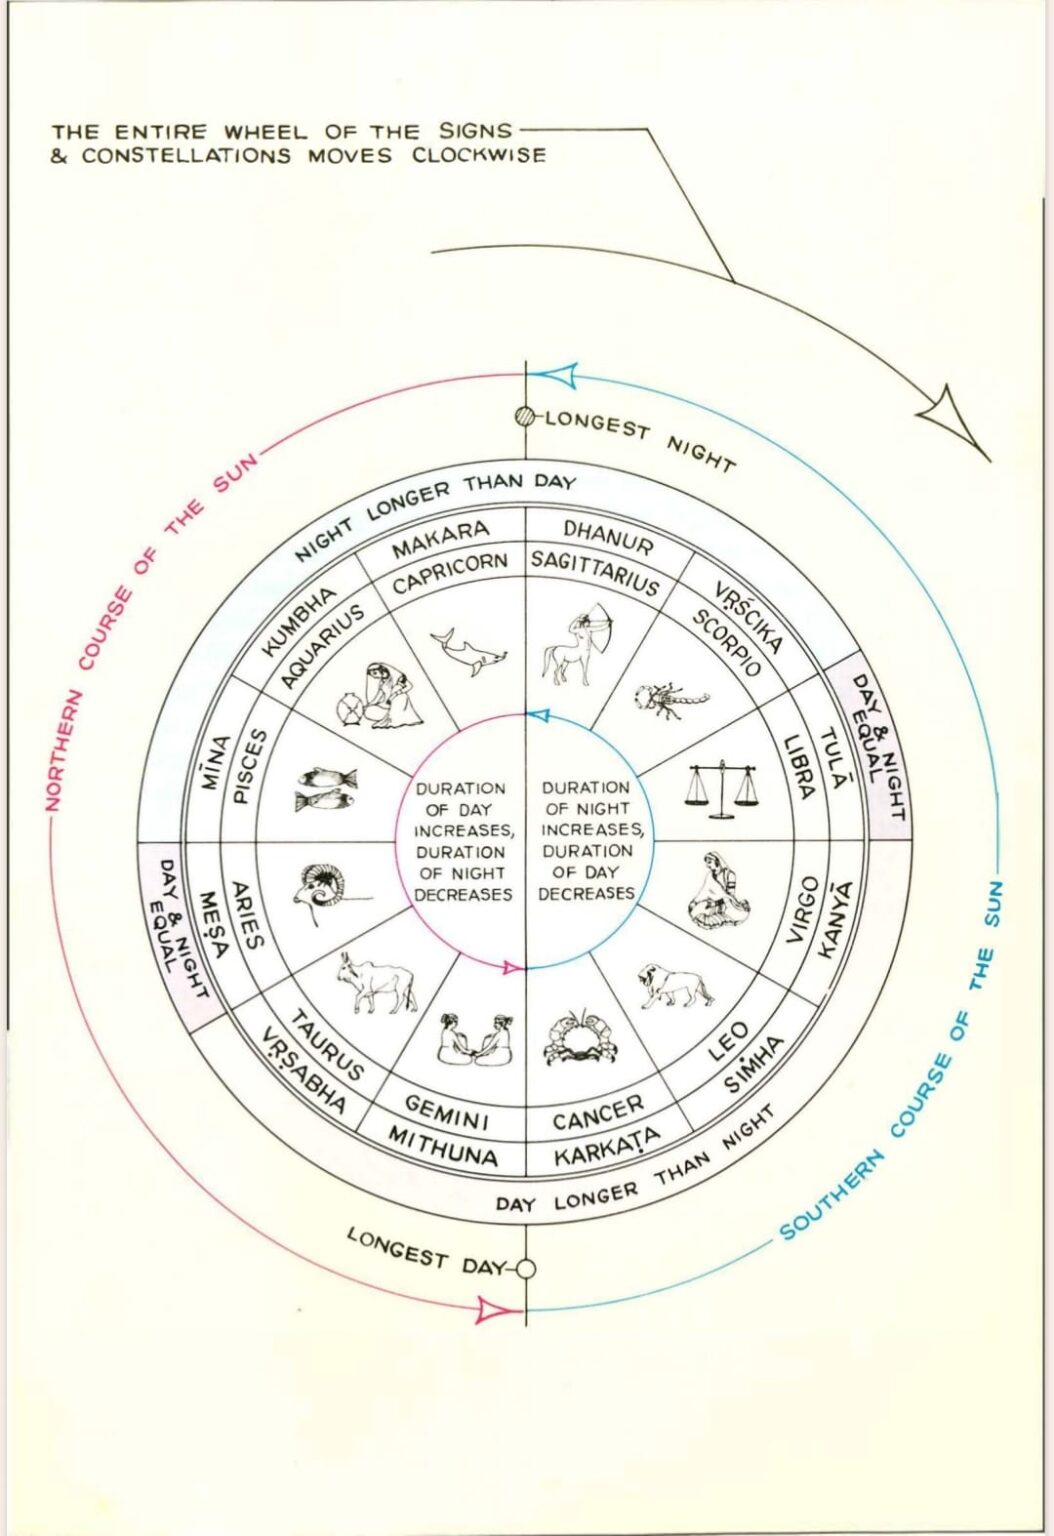 THE ENTIRE WHEEL OF THE SIGNS
& CONSTELLATIONS MOVES CLOCKWISE
LONGEST NIGHT
NORTHERN COURSE OF THE SUN
SOUTHERN COURSE OF THE SUN
NIGHT LONGER THAN DAY
MAKARA
CAPRICORN
DHANUR
SAGITTARIUS
VṚŚCIKA
SCORPIO
DAY & NIGHT
EQUAL
TULĀ
LIBRA
KANYĀ
VIRGO
SIṀHA
LEO
KARKAṬA
CANCER
MITHUNA
GEMINI
VṚṢABHA
TAURUS
DAY & NIGHT
EQUAL
MEṢA
ARIES
MĪNA
PISCES
KUMBHA
AQUARIUS
DURATION
OF DAY
INCREASES,
DURATION
OF NIGHT
DECREASES
DURATION
OF NIGHT
INCREASES,
DURATION
OF DAY
DECREASES
DAY LONGER THAN NIGHT
LONGEST DAY